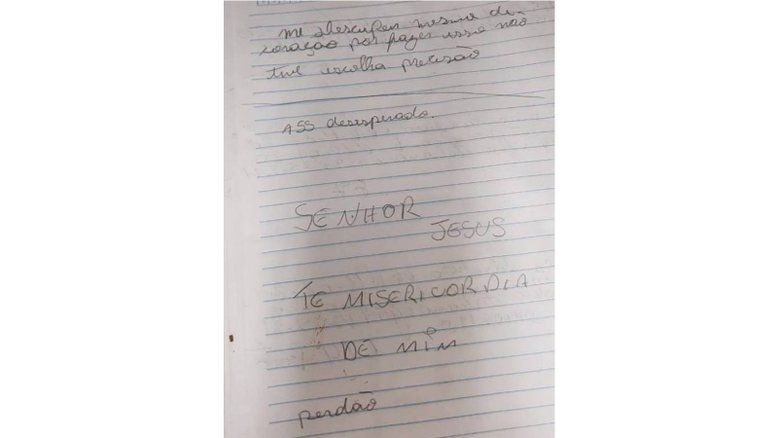 me desculpem mesmo de
coração por fazer isso não
tive escolha precisão
ASS desesperado.
SENHOR
JESUS
TE MISERICORDIA
DE MIM
perdão